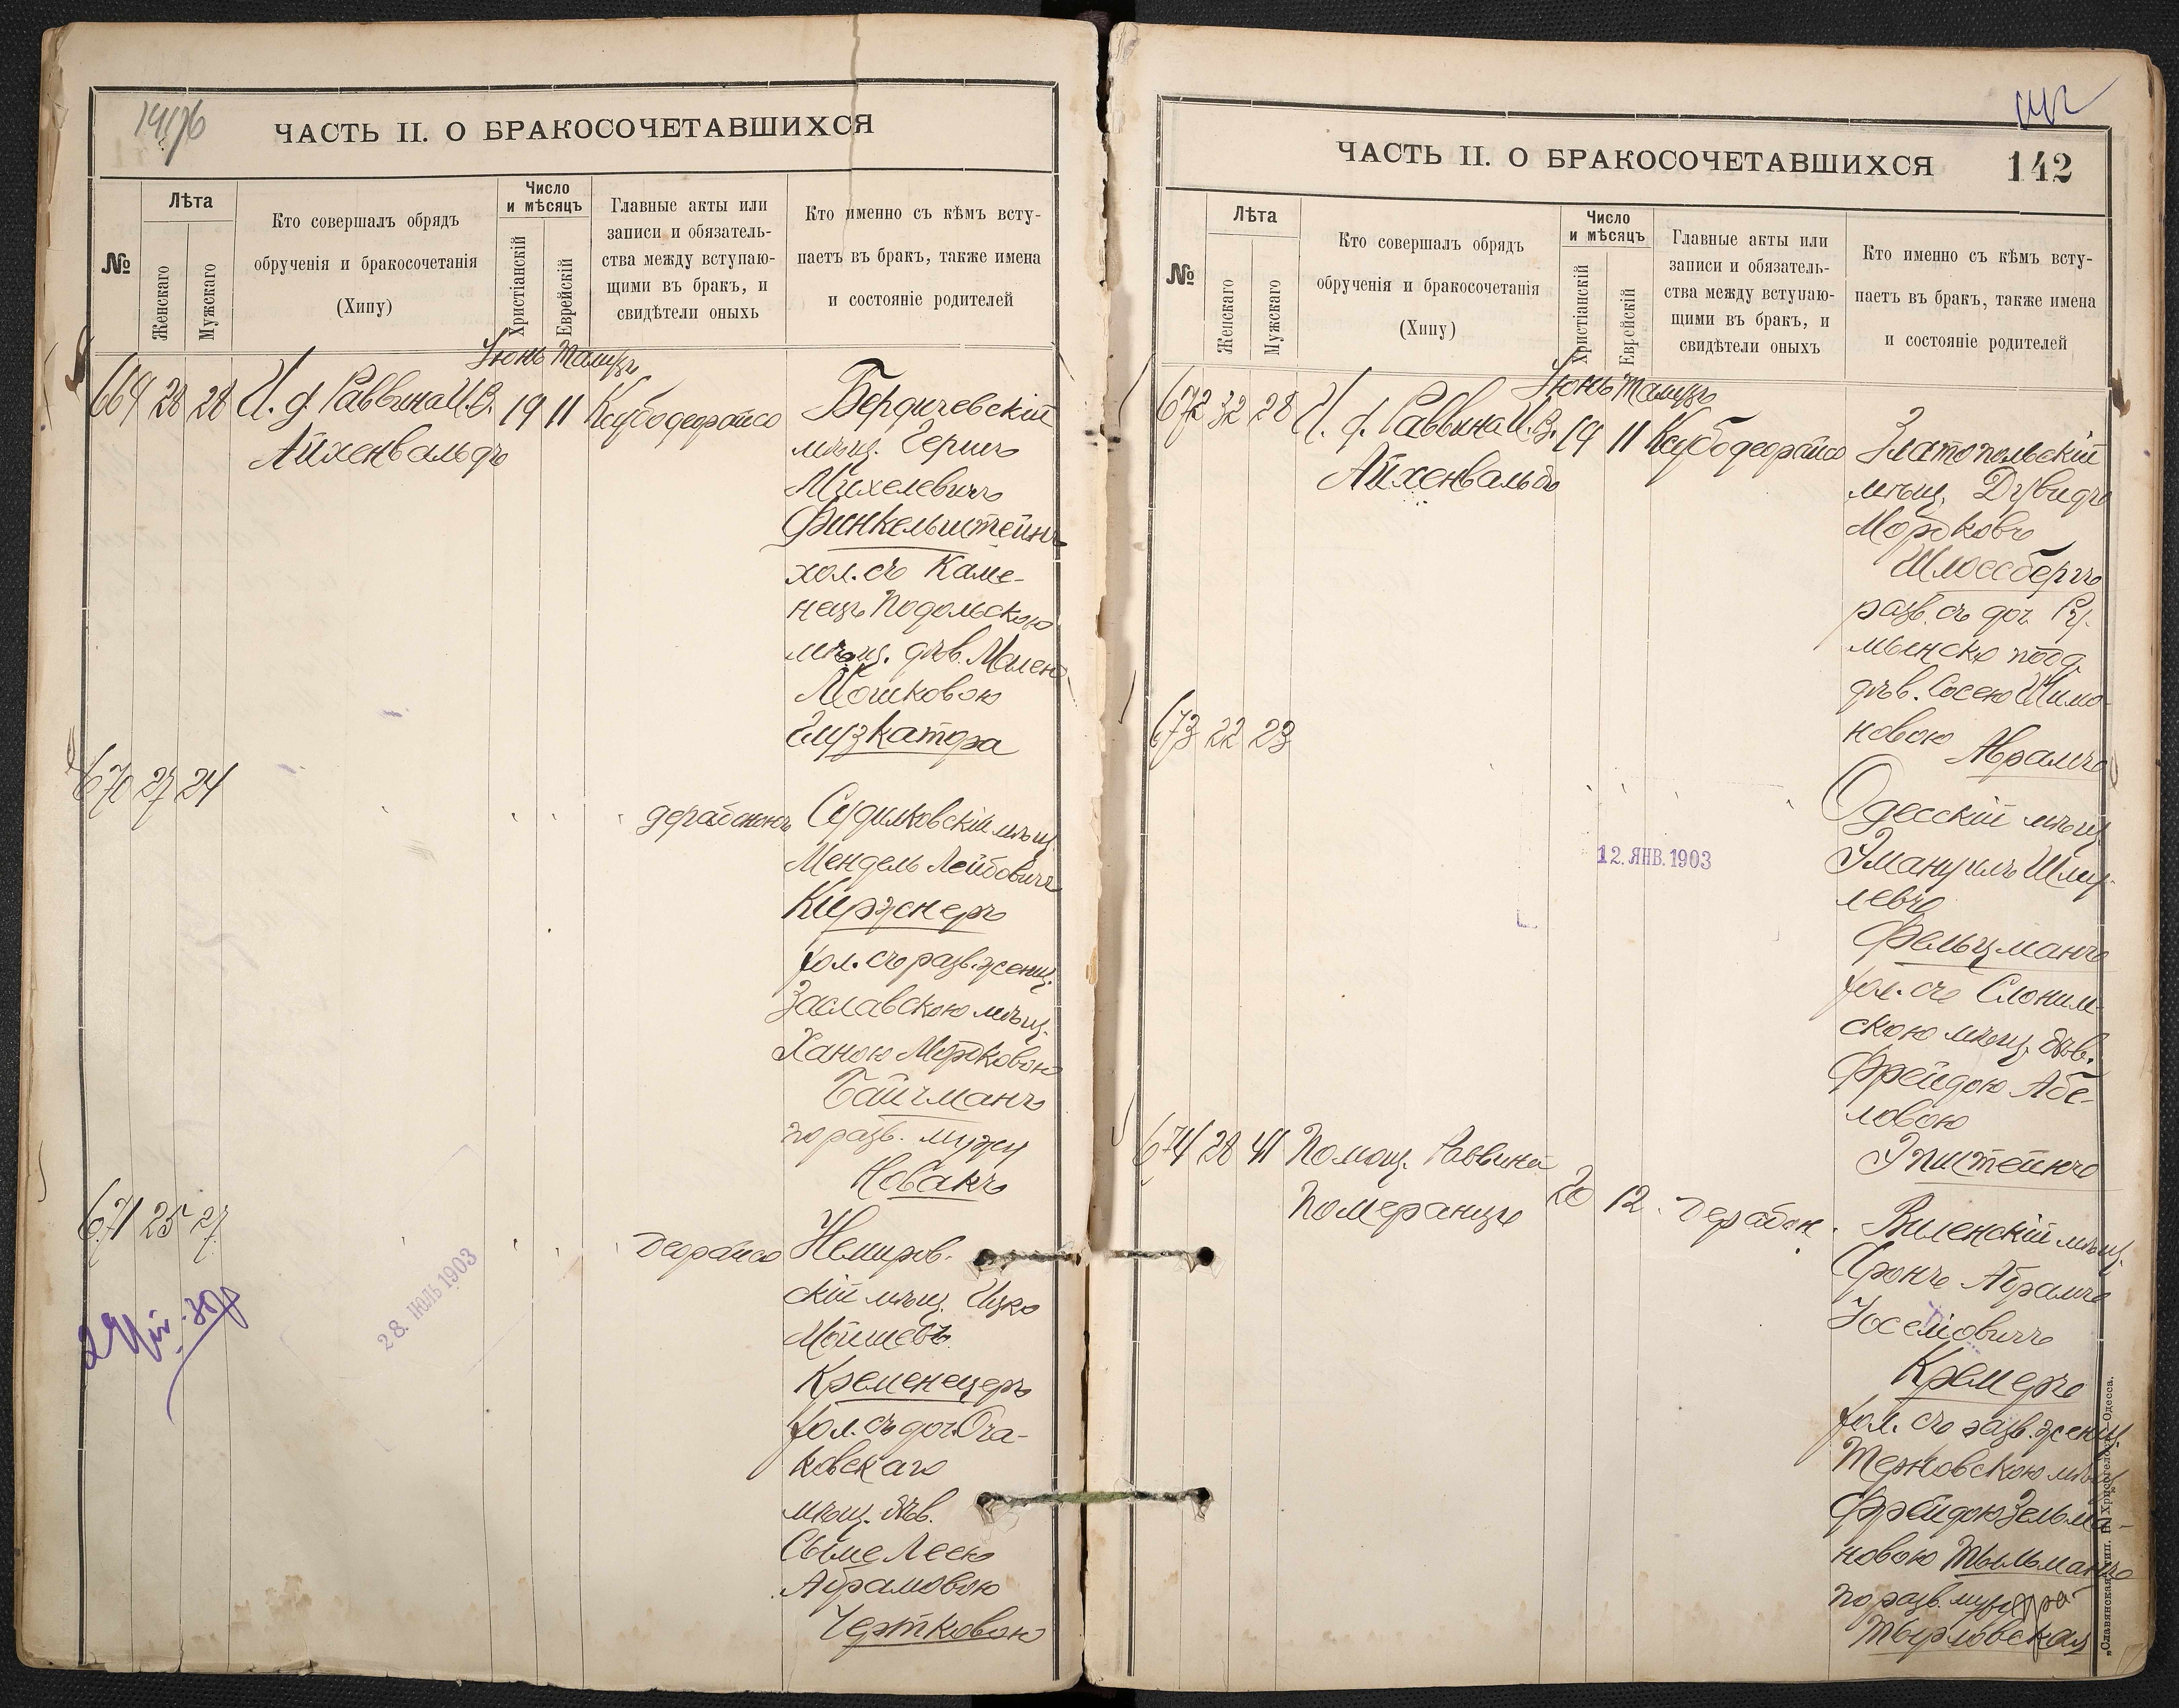 ЧАСТЬ II. О БРАКОСОЧЕТАВШИХСЯ
№
Лѣта
Женскаго
Мужскаго
Кто совершалъ обрядъ
обрученія и бракосочетанія
(Хипу)
Число
и мѣсяцъ
Христіанскій
Еврейскій
Главные акты или
записи и обязатель-
ства между вступаю-
щими въ бракъ, и
свидѣтели оныхъ
Кто именно съ кѣмъ всту-
паетъ въ бракъ, также имена
и состояніе родителей
Іюнь Тамузъ
669 28 28 И. д. Раввина И. В. 19 11 Ксубо деорайсо
Айхенвальдъ
Бердичевскій
мѣщ. Гершъ
Михелевичъ
Финкельштейнъ
хол. съ Каме-
нецъ Подольскою
мѣщ. дѣв.
Мошковою
670 27 24
дерабононъ Судилковскій мѣщ.
Мендель Лейбовичъ
Киржнеръ
хол. съ разв. женщ.
Заславскою мѣщ.
Ханою Мордковою
по разв. мужу
Новакъ
671 25 27
деорайсо Немиров-
скій мѣщ. Ицко
Мойшевъ
Кременецеръ
хол. съ доч. Оча-
ковскаго
мѣщ. дѣв.
Сыме Леею
Абрамовою
Чертковою
28. ІЮЛЬ 1903
ЧАСТЬ II. О БРАКОСОЧЕТАВШИХСЯ
142
№
Лѣта
Женскаго
Мужскаго
Кто совершалъ обрядъ
обрученія и бракосочетанія
(Хипу)
Число
и мѣсяцъ
Христіанскій
Еврейскій
Главные акты или
записи и обязатель-
ства между вступаю-
щими въ бракъ, и
свидѣтели оныхъ
Кто именно съ кѣмъ всту-
паетъ въ бракъ, также имена
и состояніе родителей
Іюнь Тамузъ
672 32 28 И. д. Раввина И. В. 19 11 Ксубо деорайсо
Айхенвальдъ
Златопольскій
мѣщ. Дувидъ
Мордковъ
Шлоссбергъ
разв. съ доч. Ру-
мынск. подд.
дѣв. Сосею Шимо-
новою Абрамъ
673 22 23
Одесскій мѣщ.
Эмануилъ Шму-
левъ
Фельцманъ
хол. съ Слоним-
скою мѣщ. дѣв.
Фрейдою Абе-
ловою
Эпштейнъ
12. ЯНВ. 1903
674 28 41 Помощ. Раввина
Померанцъ 20 12 Дерабон.
Виленскій мѣщ.
Аронъ Абрамъ
Іоселіовичъ
Кремеръ
хол. съ разв. женщ.
Терновскою мѣщ.
Фрейдою Зельма-
новою Тыльманъ
по разв. мужу
„Славянская“ тип. Н. Хрисогелосъ—Одесса.